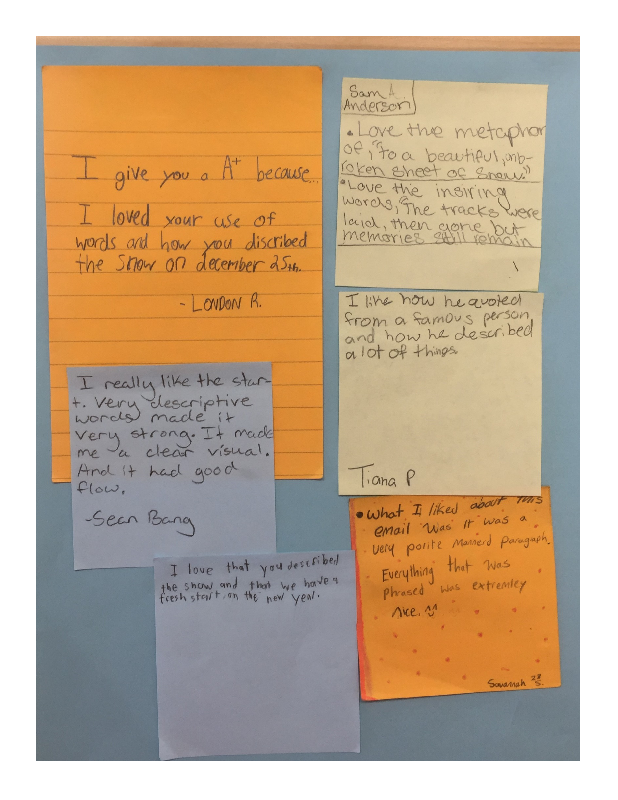 I give you a A+ because...
I loved your use of
words and how you discribed
the snow on december 25th.
- LONDON R.
Sam A.
Anderson
• Love the metaphor
of, "to a beautiful, unb-
roken sheet of snow."
• Love the insiring
words, "The tracks were
laid, then gone but
memories still remain
I like how he quoted
from a famous person
and how he described
a lot of things.
Tiana P
I really like the star-
t. Very descriptive
words made it
very strong. It made
me a clear visual.
And it had good
flow.
-Sean Bang
• What I liked about this
email was it was a
very polite Mannerd Paragraph.
Everything that was
Phrased was extremley
Nice.
Savannah
I love that you described
the snow and that we have a
fresh start on the new year.